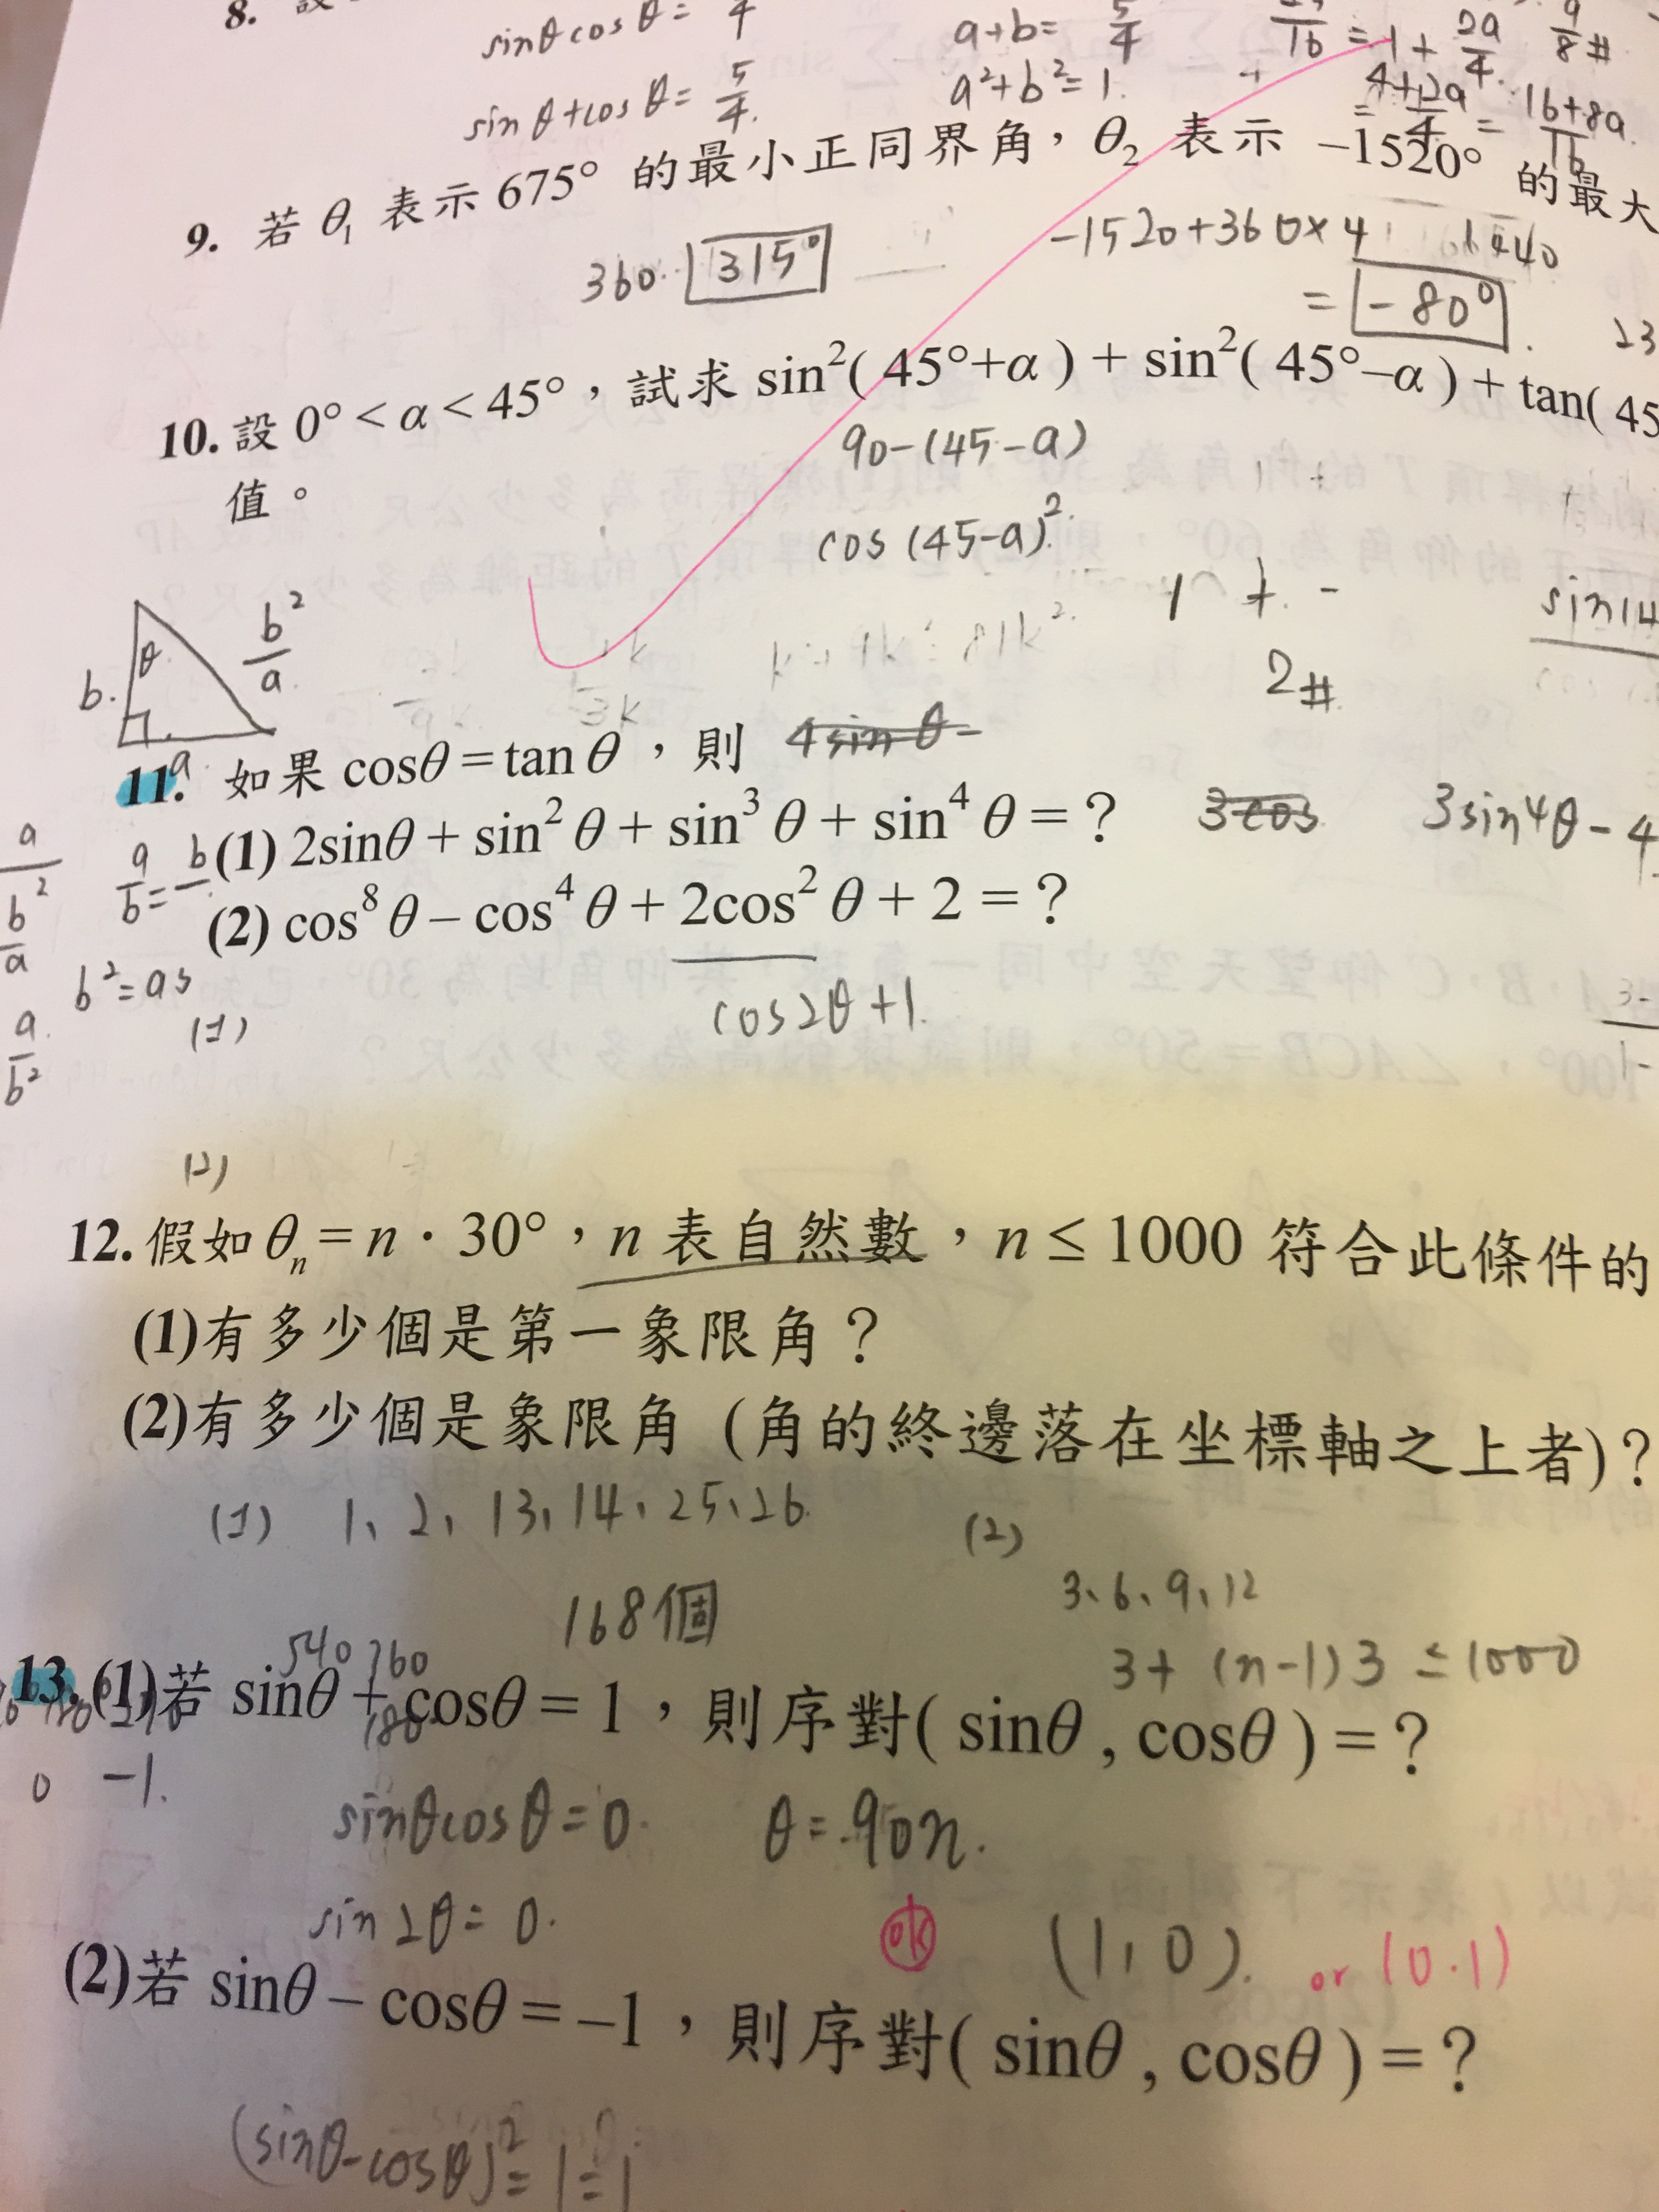 8. 設
sinθcosθ=
sinθ+cosθ= 5/4.
a+b= 5/4
a²+b²=1.
= 1 + 2a/4
9/8 #
= 4+2a/4 = 16+8a/16
9. 若 θ₁ 表示 675° 的最小正同界角，θ₂ 表示 −1520° 的最大
360. 315°
−1520+360×4 1440
= −80°.
23
10. 設 0° < α < 45°，試求 sin²( 45°+α ) + sin²( 45°−α ) + tan( 45
值。
90−(45−a)
cos (45−a)².
1 + −
2#
sin14
b. θ b²/a
a
11. 如果 cosθ = tan θ，則 4sinθ
(1) 2sinθ + sin² θ + sin³ θ + sin⁴ θ = ?
3cos 3sin⁴θ − 4
a/b = b
(2) cos⁸ θ – cos⁴ θ + 2cos² θ + 2 = ?
cos2θ+1.
a
b²/a
a/b²
(1)
(2)
12. 假如 θₙ = n · 30°，n 表自然數，n ≤ 1000 符合此條件的
(1)有多少個是第一象限角？
(2)有多少個是象限角 (角的終邊落在坐標軸之上者)？
(1) 1、2、13、14、25、26.
168個
(2)
3、6、9、12
3+ (n−1)3 ≤ 1000
540 360
13. (1)若 sinθ + cosθ = 1，則序對( sinθ , cosθ ) = ?
180
0 −1.
sinθcosθ=0. θ=90n.
sin2θ= 0.
ok (1,0). or (0.1)
(2)若 sinθ – cosθ = –1，則序對( sinθ , cosθ ) = ?
(sinθ−cosθ)²=1=1